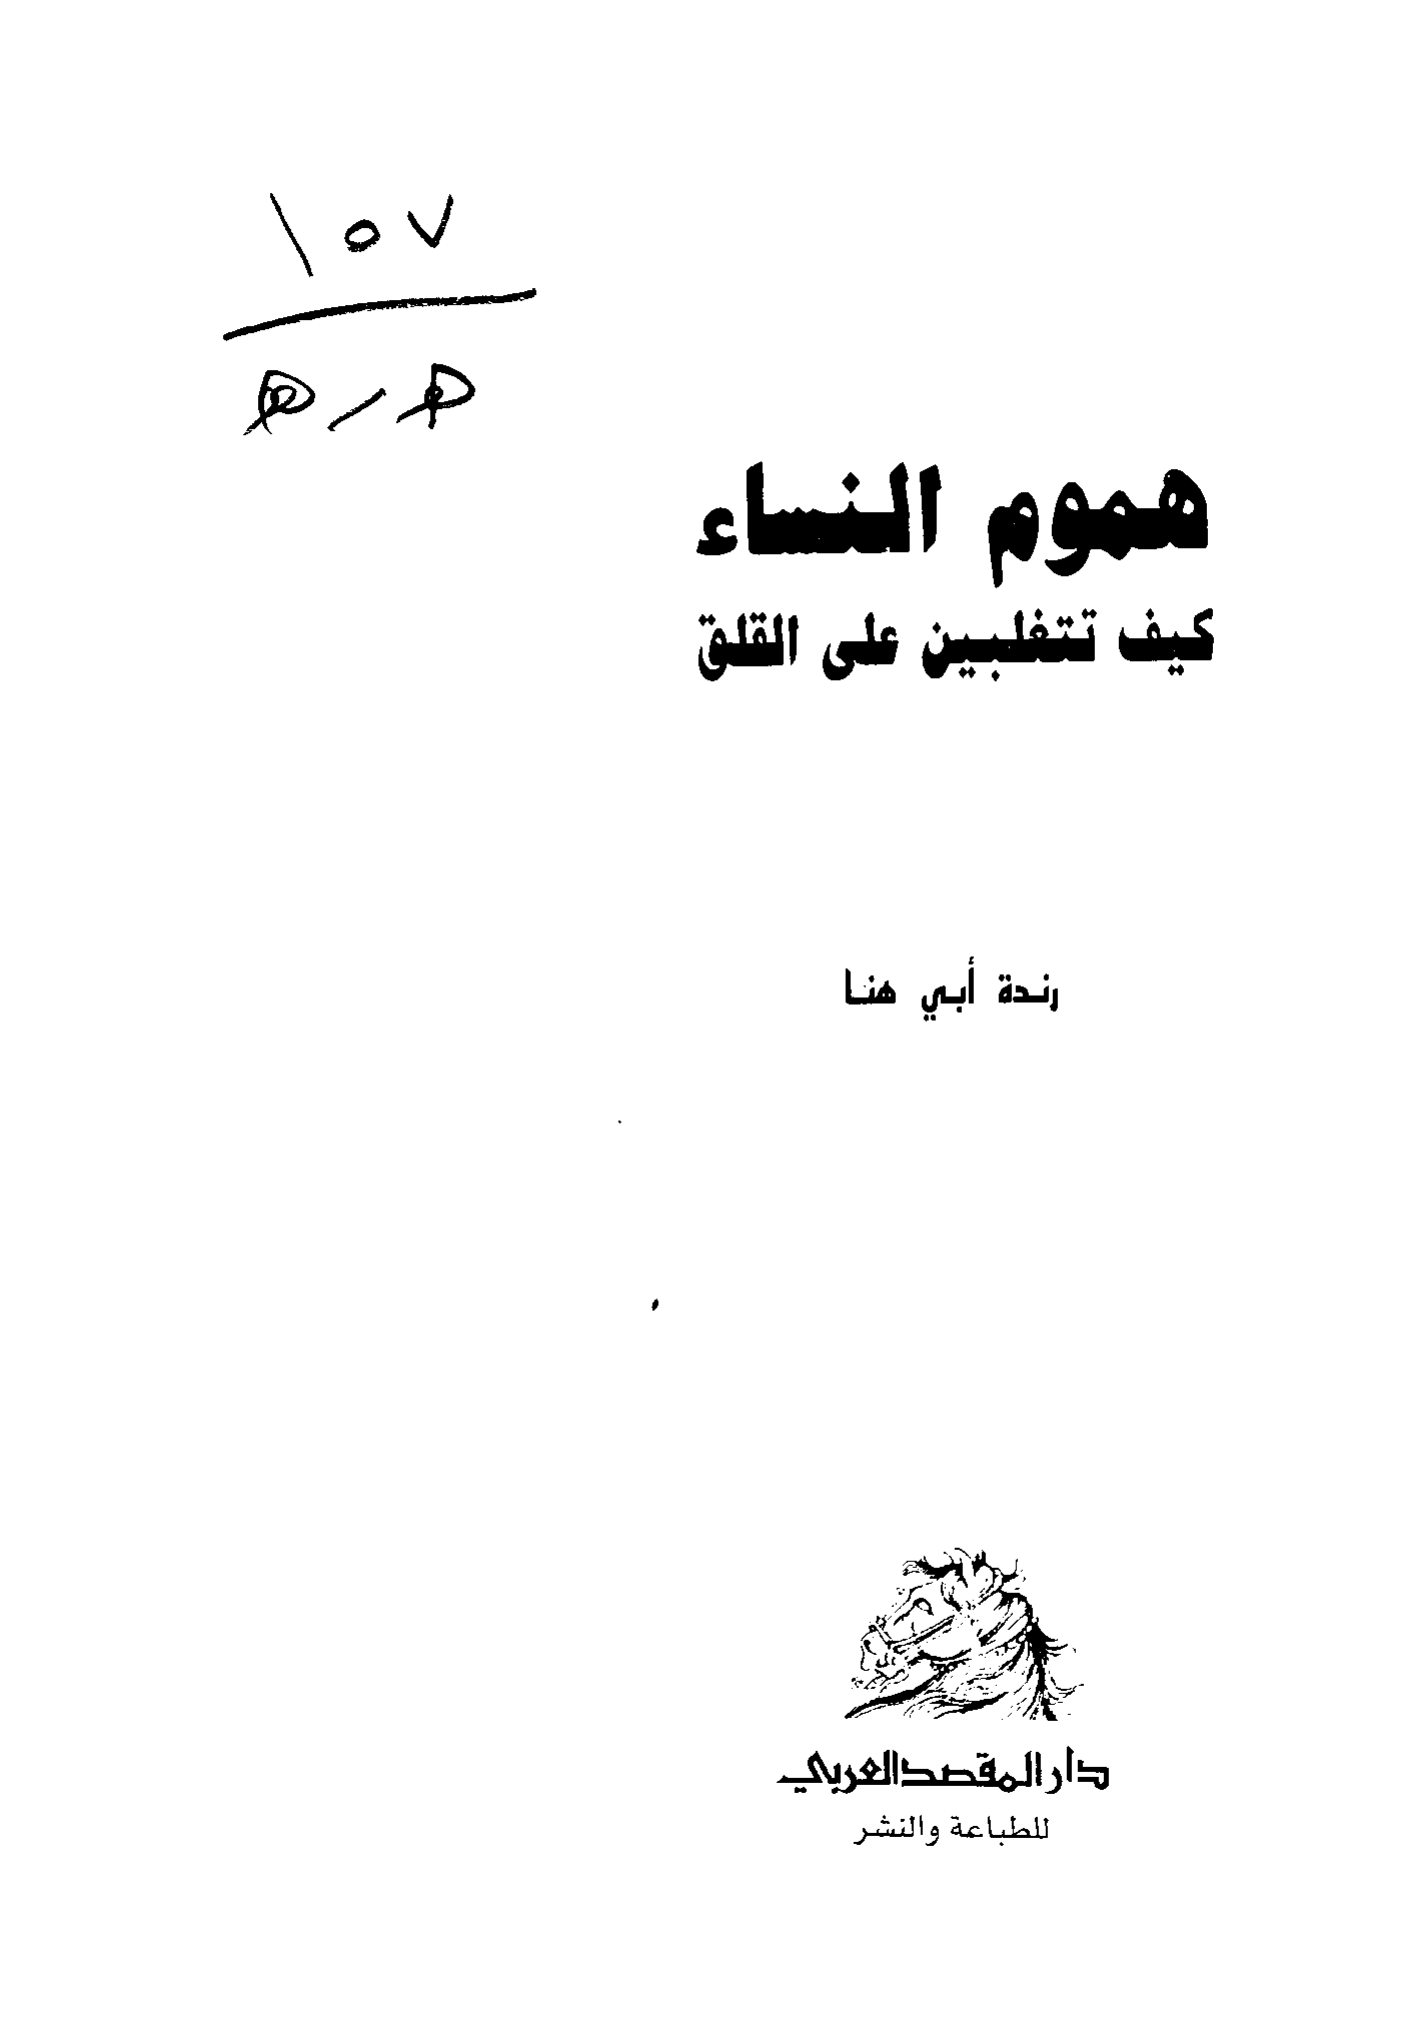 ١٥٧
هـ ر هـ
هموم النساء
كيف تتغلبين على القلق
رندة أبي هنا
دار المقصد العربي
للطباعة والنشر